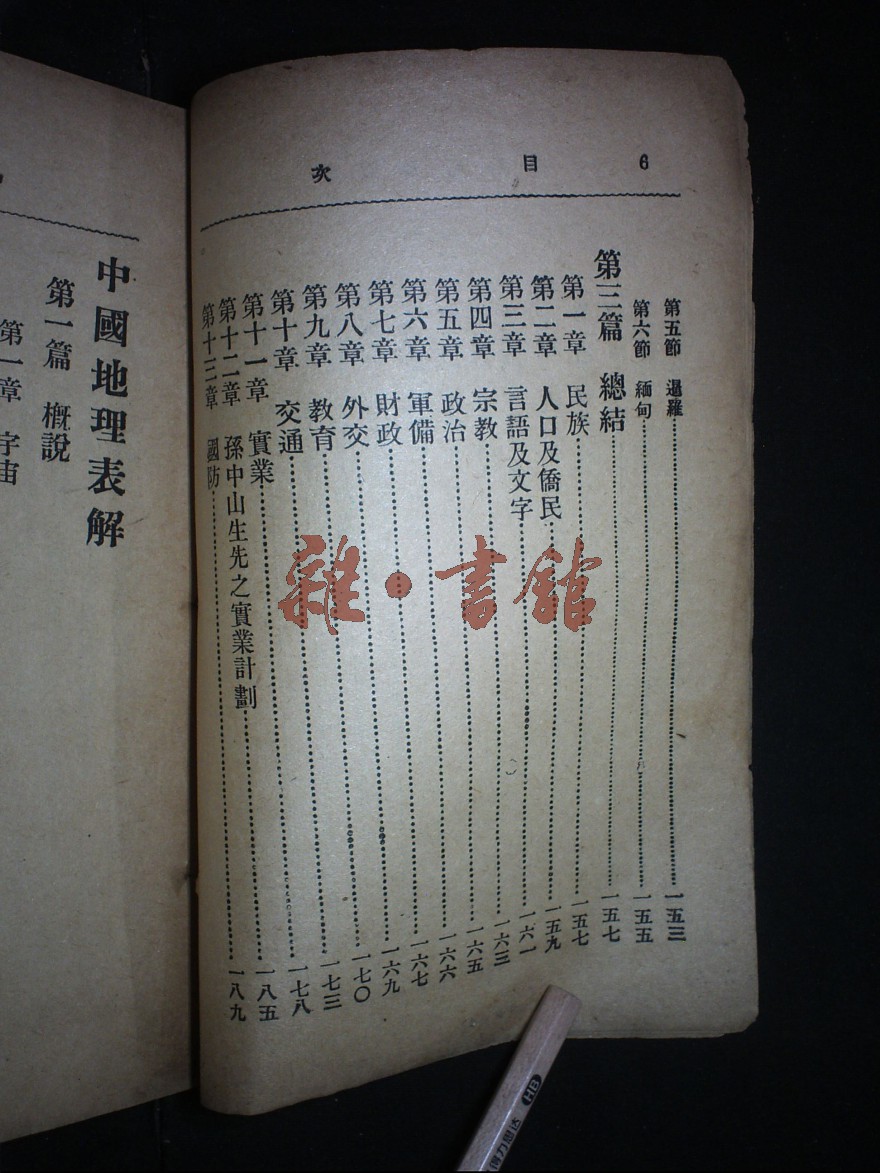 6 目 次
第五節 暹羅……一五三
第六節 緬甸……一五五
第三篇 總結……一五七
第一章 民族……一五七
第二章 人口及僑民……一五九
第三章 言語及文字……一六一
第四章 宗教……一六三
第五章 政治……一六五
第六章 軍備……一六六
第七章 財政……一六七
第八章 外交……一六九
第九章 教育……一七〇
第十章 交通……一七三
第十一章 實業……一七八
第十二章 孫中山生先之實業計劃……一八五
第十三章 國防……一八九
中國地理表解
第一篇 概說
第一章 宇宙
雜·書館
HB